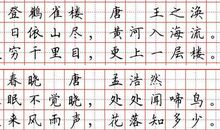 登鹳雀楼 唐 王之涣
日依山尽，黄河入海流。
穷千里目，更上一层楼。
春晓 唐 孟浩然
眠不觉晓，处处闻啼鸟。
来风雨声，花落知多少。